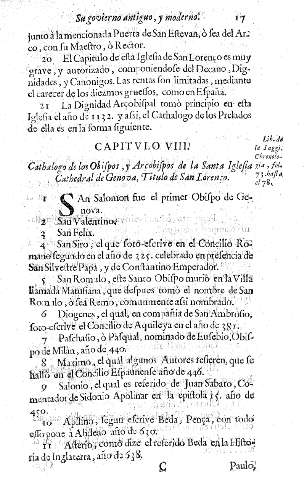 Su govierno antiguo, y moderno. 17
junto à la mencionada Puerta de San Estevan, ò sea del Ar-
co, con su Maestro, ò Rector.
20 El Capitulo de esta Iglesia de San Lorenzo es muy
grave, y autorizado, componiendose del Decano, Dig-
nidades, y Canonigos. Las rentas son limitadas, mediante
el carecer de los diezmos gruessos, como en España.
21 La Dignidad Arçobispal tomò principio en esta
Iglesia el año de 1132. y assi, el Cathalogo de los Prelados
de ella es en la forma siguiente.
CAPITULO VIII.
Cathalogo de los Obispos, y Arçobispos de la Santa Iglesia
Cathedral de Genova, Titulo de San Lorenzo.
Lib. de
la Loggi.
Chronolo-
gia, fol.
73. hasta
el 78.
1 SAn Salomon fue el primer Obispo de Ge-
nova.
2 San Valentino.
3 San Felix.
4 San Siro, el que soto-escrive en el Concilio Ro-
mano segundo en el año de 325. celebrado en presencia de
San Silvestre Papa, y de Constantino Emperador.
5 San Romulo, este Santo Obispo muriò en la Villa
llamada Matutiana, que despues tomò el nombre de San
Romulo, ò sea Remo, comunmente assi nombrado.
6 Diogenes, el qual, en compañia de San Ambrosio,
soto-escrive el Concilio de Aquileya en el año de 381.
7 Paschasio, ò Pasqual, nominado de Eusebio, Obis-
po de Milàn, año de 440.
8 Maximo, el qual algunos Autores refieren, que se
hallò en el Concilio Epaunense año de 446.
9 Salonio, el qual es referido de Juan Sabaro, Co-
mentador de Sidonio Apolinar en la epistola 15. año de
450.
10 segun escrive Beda, con todo
esso pone à año de 630.
11 Asterio, como dize el referido Beda en la Histo-
ria de Inglaterra, año de 638.
C Paulo,